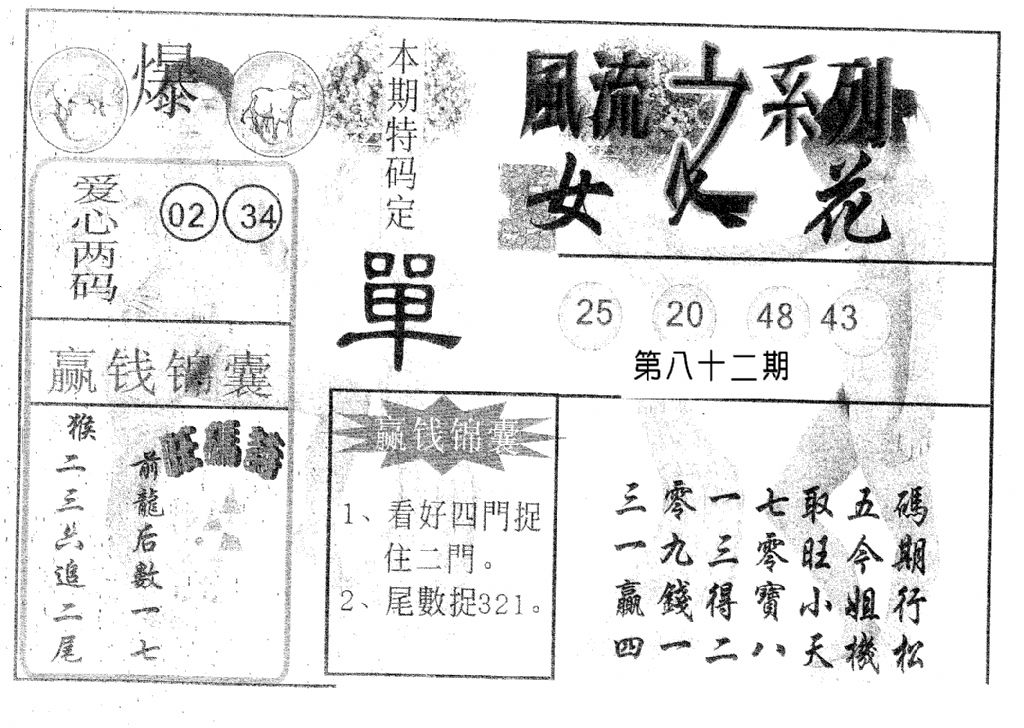 爆
爱心两码
02 34
赢钱锦囊
猴二三共追二尾
前龍后數一七
本期特码定
單
赢钱锦囊
1、看好四門捉
住二門。
2、尾數捉321。
風流之系列
女人花
25 20 48 43
第八十二期
三零一七取五碼
一九三零旺今期
贏錢得寶小姐行
四一二八天機松